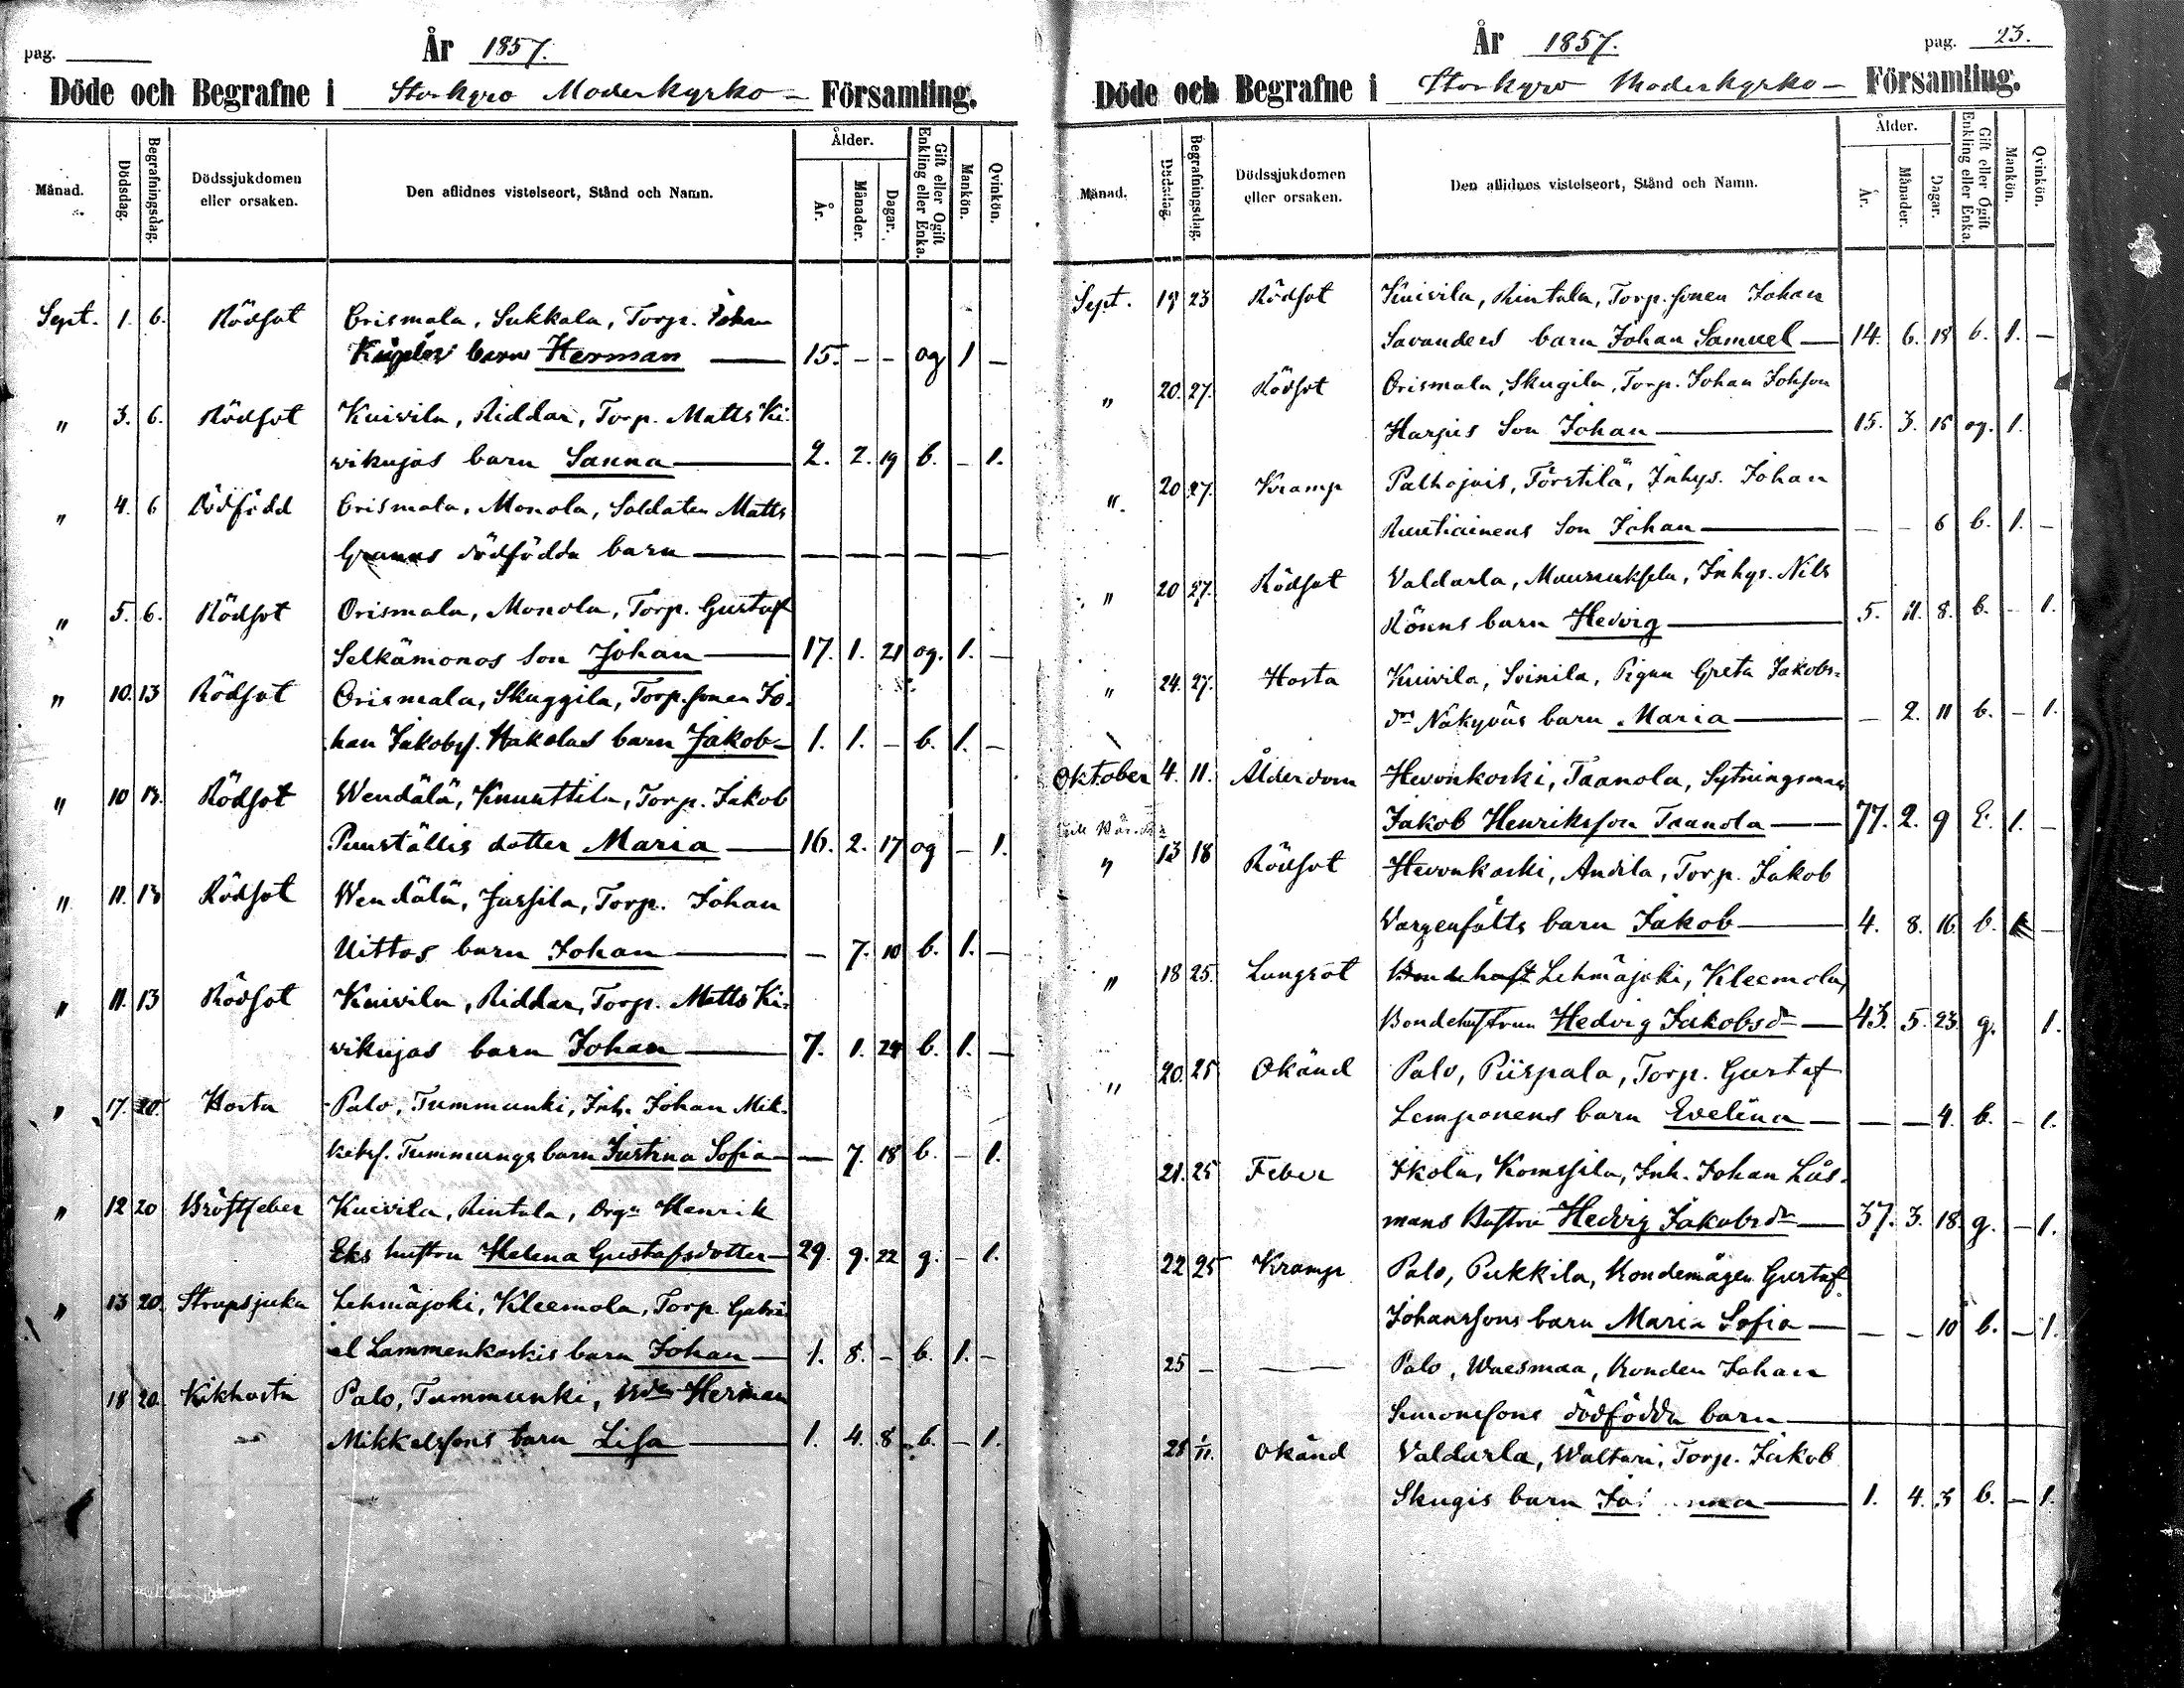 pag.
År 1857.
Döde och Begrafne i Storkyro Moderkyrko- Församling.
Månad. Dödsdag. Begrafningsdag. Dödssjukdomen eller orsaken. Den aflidnes vistelseort, Stånd och Namn. Ålder. År. Månader. Dagar. Gift eller Ogift Enkling eller Enka. Mankön. Qvinkön.
Sept. 1. 6. Rödsot Orismala, Sukkala, Torp. Johan
barn Herman — 15. - - og 1 —
" 3. 6. Rödsot Kuivila, Riddar, Torp. Matts Ki-
vikujas barn Sanna — 2. 2. 19 b. - 1.
" 4. 6 Dödfödd Orismala, Monola, Soldaten Matts
Granas dödfödda barn — — — — — —
" 5. 6. Rödsot Orismala, Monola, Torp. Gustaf
Selkämonos Son Johan — 17. 1. 21 og. 1. —
" 10. 13 Rödsot Orismala, Skuggila, Torp. sonen Jo-
han Jakobss. Hakolas barn Jakob — 1. 1. - b. 1. —
" 10 13. Rödsot Wendälä, Knuuttila, Torp. Jakob
dotter Maria — 16. 2. 17 og - 1.
" 11. 13 Rödsot Wendälä, Jussila, Torp. Johan
Uittos barn Johan — — 7. 10 b. 1. —
" 11. 13 Rödsot Kuivila, Riddar, Torp. Matts Ki-
vikujas barn Johan — 7. 1. 24 b. 1. —
" 17. 20. Hosta Palo, Tummunki, Inh. Johan Mik-
kels. Tummungs barn Justina Sofia — — 7. 18 b. - 1.
" 12 20 Bröstfeber Kuivila, Rintala, Drgn Henrik
Eks hustru Helena Gustafsdotter — 29. 9. 22 g. - 1.
" 13 20. Strupsjuka Lehmäjoki, Kleemola, Torp. Gabri-
el Lammenkoskis barn Johan — 1. 8. - b. 1. -
18 20. Kikhosta Palo, Tummunki, Herman
Mikkelssons barn Lisa — 1. 4. 8 b. - 1.
År 1857. pag. 23.
Döde och Begrafne i Storkyro Moderkyrko- Församling.
Månad. Dödsdag. Begrafningsdag. Dödssjukdomen eller orsaken. Den aflidnes vistelseort, Stånd och Namn. Ålder. År. Månader. Dagar. Gift eller Ogift Enkling eller Enka. Mankön. Qvinkön.
Sept. 19 23 Rödsot Kuivila, Rintala, Torp. sonen Johan
Savanders barn Johan Samuel — 14. 6. 18 b. 1. —
" 20. 27. Rödsot Orismala, Skugila, Torp. Johan Johsson
Harjus Son Johan — 15. 3. 15 og. 1.
" 20 27. Kramp Palhojais, Törstilä, Inhys. Johan
Ruutiainens Son Johan — — - 6 b. 1. -
" 20 27. Rödsot Valdarla, Inhys. Nils
Rönns barn Hedvig — 5. 11. 8. b. - 1.
" 24. 27. Hosta Kuivila, Soinila, Pigan Greta Jakobs-
dr Näkyväs barn Maria — — 2. 11 b. - 1.
Oktober 4. 11. Ålderdom Hevonkoski, Taanola, Sytningsman
Jakob Henriksson Taanola — 77. 2. 9 E. 1. —
" 13 18 Rödsot Hevonkoski, Andila, Torp. Jakob
Vargenfälts barn Jakob — 4. 8. 16 b. 1. —
" 18 25. Lungsot Lehmäjoki, Kleemola,
Bondehustrun Hedvig Jakobsdr — 43. 5. 23 g. 1.
" 20. 25 Okänd Palo, Piispala, Torp. Gustaf
Lemponens barn Evelina — — — 4. b. - 1.
21. 25 Feber Ikola, Komssila, Inh. Johan Lås-
mans Hustru Hedvig Jakobsdr — 37. 3. 18 g. - 1.
22 25 Kramp Palo, Pukkila, Bondemågen Gustaf
Johanssons barn Maria Sofia — — - 10 b. - 1.
25 - — Palo, Waesmaa, Bonden Johan
Simonssons dödfödda barn —
25 1/11. Okänd Valdarla, Waltari, Torp. Jakob
Skugis barn — 1. 4. 3 b. - 1.